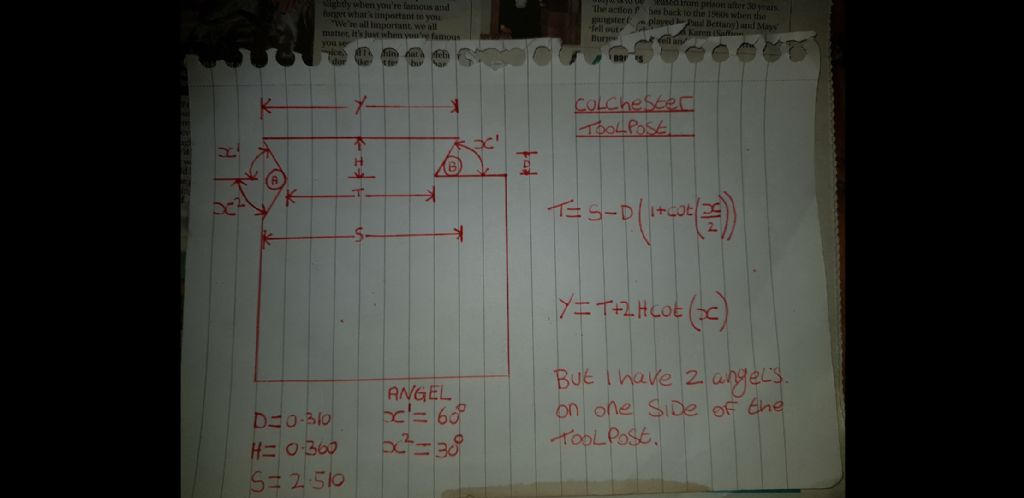 slightly when you're famous and
forget what's important to you.
"We're all important, we all
matter, it's just when you're famous
eased from prison after 30 years.
The action f
hes back to the 1960s when the
gangster (
played
Paul Bettany) and Mays'
fell out
Karen (Saffron
Y
COLCHESTER
TOOLPOST
x¹
H
x¹
A
B
D
x²
T
T = S-D(1+cot(x/2))
S
Y = T+2Hcot(x)
But I have 2 angels.
on one SiDe of the
TOOLPOST.
ANGEL
D=0.310
x¹= 60°
H= 0.360
x²= 30°
S= 2.510